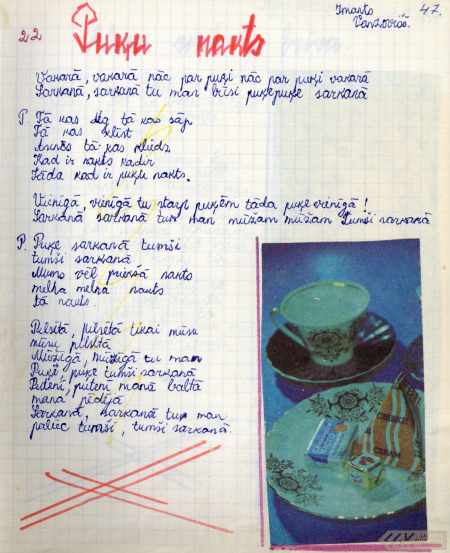 Imants
Vanzovičš.
47.
22
Puķu nakts
Vakarā, vakarā nāc par puķi nāc par puķi vakarā
Sarkanā, sarkanā tu man būsi puķepuķe sarkanā
P. Tā kas deg tā kas sāp
Tā kas klīst
Annēs tā kas kliedz
Kad ir nakts kad ir
Tāda kad ir puķu nakts.
Vienīgā, vienīgā tu starp puķēm tāda puķe vienīgā!
Sarkanā sarkanā tu man mūžam mūžam tumši sarkanā
P. Puķe sarkanā tumši
tumši sarkanā
Mums vēl priekšā nakts
melna melna nakts
tā nakts.
Pilsētā, pilsētā tikai mūsu
mūsu pilsētā
Mūžīgā, mūžīgā tu man
Puķe, puķe tumši sarkanā
Putenī, putenī manā baltā
manā pēdējā
Sarkanā, sarkanā tu man
paliec tumši, tumši sarkanā.